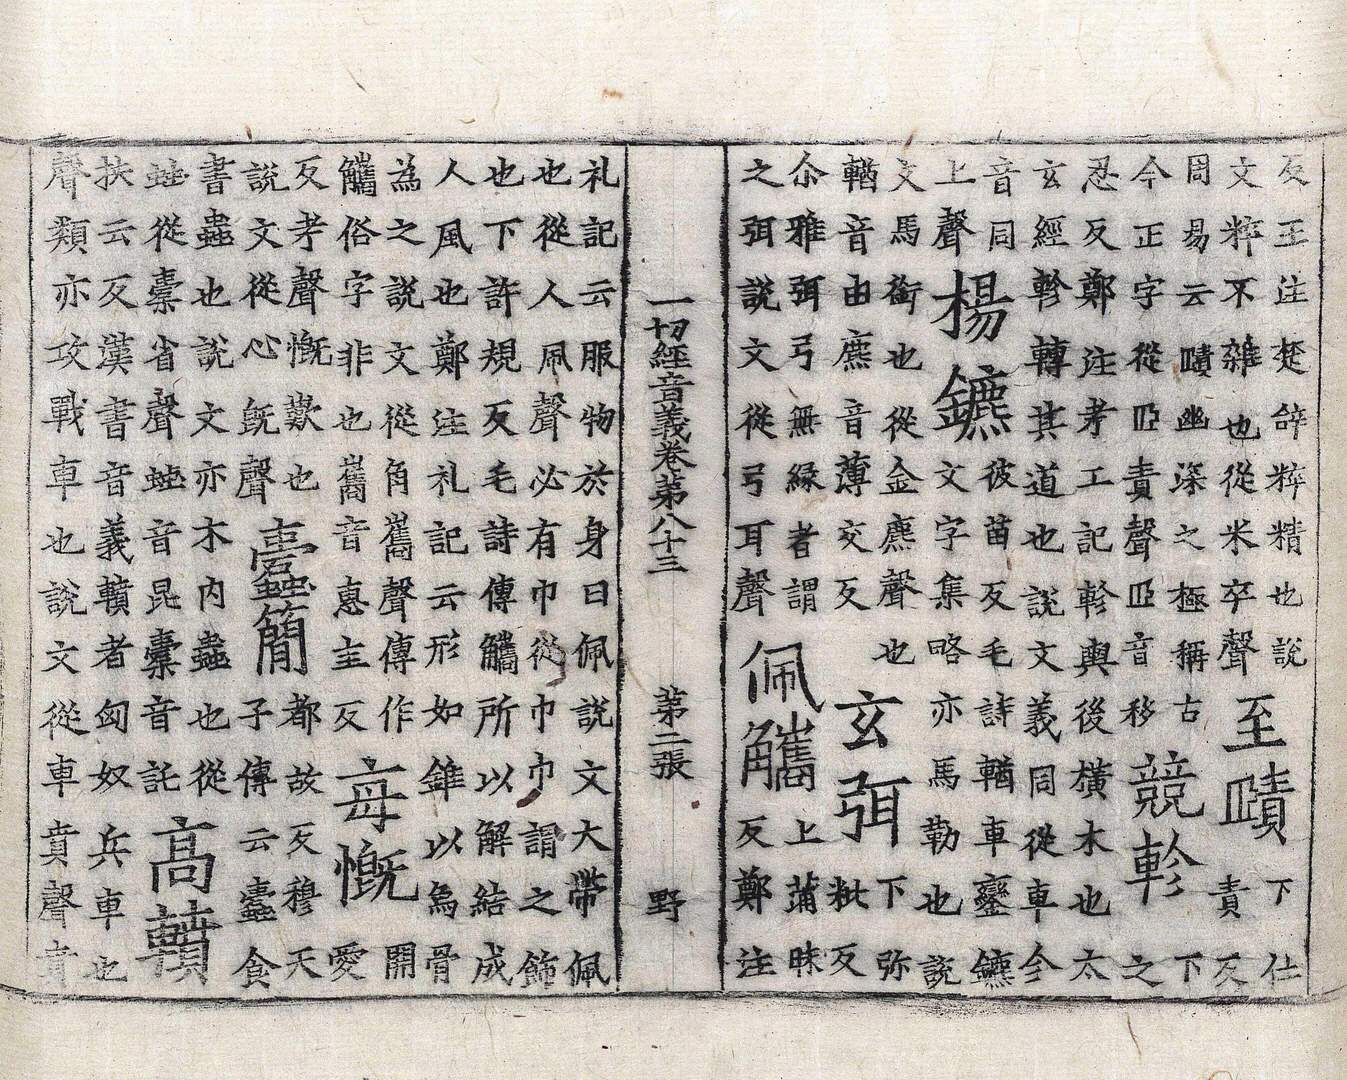 反王注楚辭粹精也說
文粹不雜也從米卒聲
至賾
下仕
責反
周易云賾幽深之極稱古
今正字從𦣞責聲𦣞音移
競軫
下
之
忍反鄭注考工記軫輿後橫木也太
玄經軫轉其道也說文義同從車㐱
音同
上聲
楊鑣
彼苗反毛詩輶車鸞鑣
文字集略亦馬勒也說
文馬銜也從金麃聲也
輶音由麃音薄交反
玄弭
下弥
枇反
尒雅弭弓無緣者謂
之弭說文從弓耳聲
佩觿
上蒲昧
反鄭注
一切經音義卷第八十三 第二張 野
礼記云服物於身曰佩說文大帶佩
也從人凧聲必有巾從巾巾謂之飾
也下許規反毛詩傳觿所以解結成
人風也鄭注礼記云形如錐以為骨
為之說文從角巂聲傳作
觿俗字非也巂音惠圭反
每慨
開
愛
反考聲慨歎也
說文從心旣聲
蠹簡
都故反穆天
子傳云蠹食
書蟲也說文亦木内蟲也從
䖵從橐省聲䖵音昆橐音託
高轒
扶云反漢書音義轒者匈奴兵車也
聲類亦攻戰車也說文從車賁聲賁